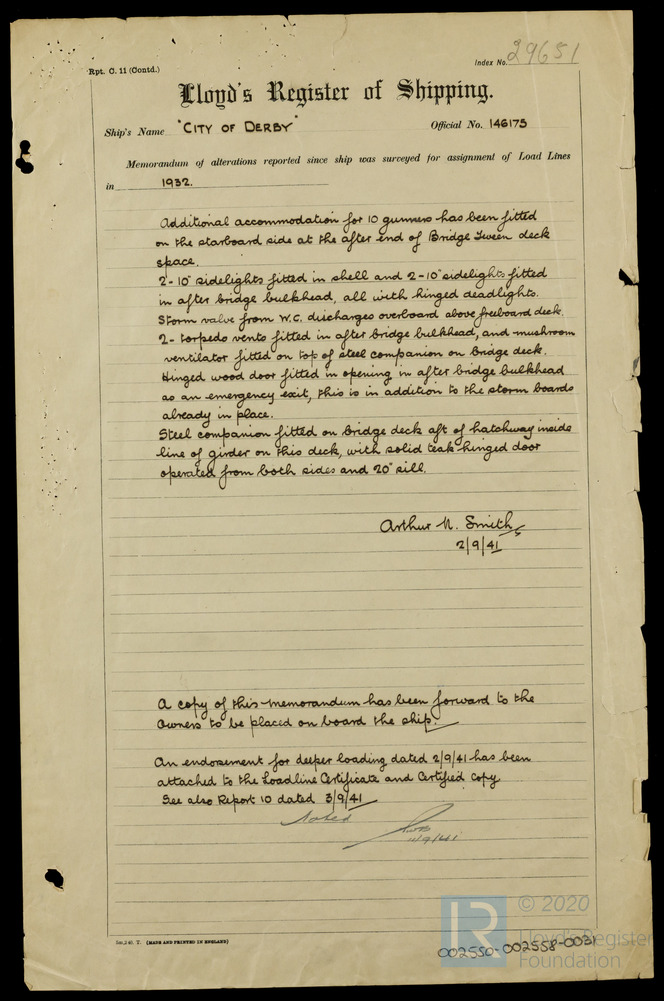 Rpt. C. 11 (Contd.)
Index No. 29651
Lloyd's Register of Shipping.
Ship's Name "CITY OF DERBY" Official No. 146175
Memorandum of alterations reported since ship was surveyed for assignment of Load Lines
in 1932.
Additional accommodation for 10 gunners has been fitted
on the starboard side at the after end of Bridge Tween deck
space.
2-10" sidelights fitted in shell and 2-10" sidelights fitted
in after bridge bulkhead, all with hinged deadlights.
Storm valve from W.C. discharges overboard above freeboard deck.
2- torpedo vents fitted in after bridge bulkhead, and mushroom
ventilator fitted on top of steel companion on bridge deck.
Hinged wood door fitted in opening in after bridge bulkhead
as an emergency exit, this is in addition to the storm boards
already in place.
Steel companion fitted on bridge deck aft of hatchway inside
line of girder on this deck, with solid teak hinged door
operated from both sides and 20" sill.
Arthur N. Smith
2/9/41
A copy of this memorandum has been forward to the
Owners to be placed on board the ship.
An endorsement for deeper loading dated 2/9/41 has been
attached to the Loadline Certificate and Certified copy
See also Report 10 dated 3/9/41
Noted
(MADE AND PRINTED IN ENGLAND)
LR © 2020
Lloyd's Register
Foundation
002550-002558-0031